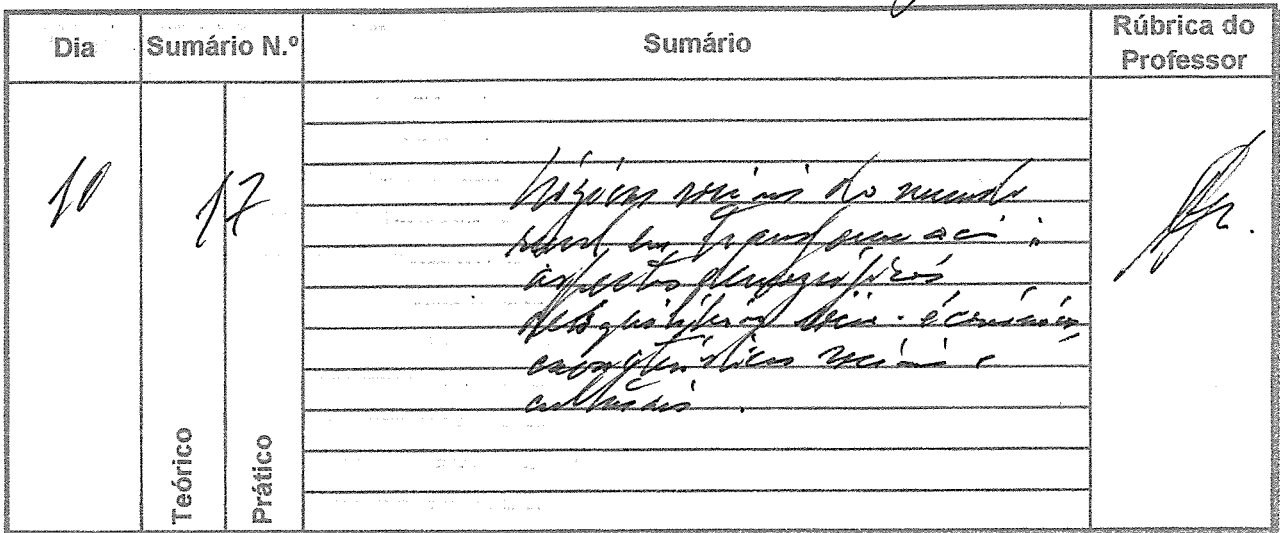 Dia Sumário N.º Sumário Rúbrica do Professor
10 17
Lógicas sociais do mundo
rural em transformação:
aspectos demográficos
sócio-económicos,
características sociais e
culturais.
Teórico
Prático